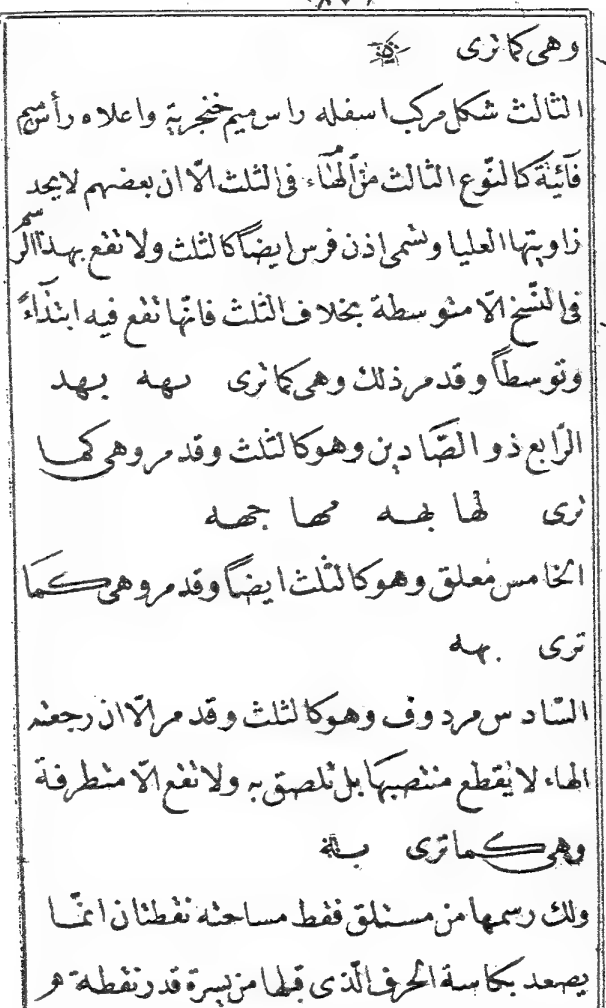 وهى كما ترى ه
الثالث شكل مركب اسفله راس ميم خنجرية واعلاه رأس ميم
فآئيّة كالنّوع الثالث من الهٰٓاء فى الثلث الّا ان بعضهم لايحد
زاويتها العليا وتسمى اذن فرس ايضاً كالثلث ولا تقع بهذا الرسم
فى النّسخ الّا متوسطة بخلاف الثلث فانّها تقع فيه ابتدٓاءً
وتوسطاً وقد مر ذلك وهى كما ترى بهه بهد
الرّابع ذو الصّادين وهو كالثلث وقد مر وهى كما
ترى لها بهه مها جهه
الخامس مُعلق وهو كالثلث ايضاً وقد مر وهى كما
ترى بهه
السّادس مردوف وهو كالثلث وقد مر الّا ان رجعته
الهاء لا يُقطع منتصبها بل تلصق به ولا تقع الّا متطرفة
وهى كما ترى بله
ولك رسمها من مستلق فقط مساحته نقطتان انمّا
يصعد بكاسة الحرف الّذى قبلها من يسرة قدر نقطة هو